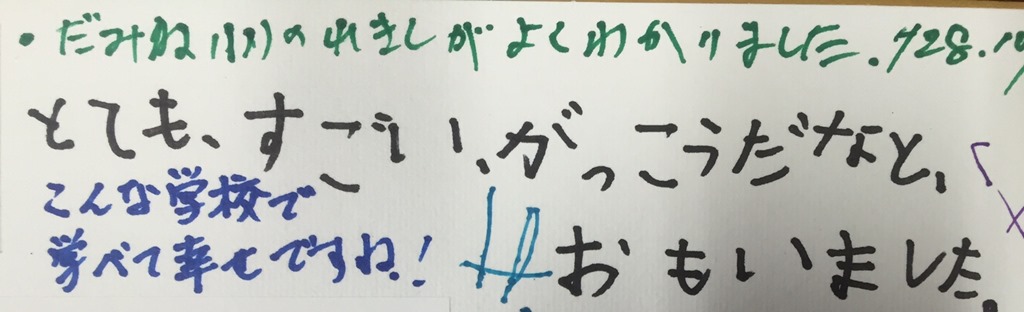 ・だみね小の れきしが よくわかりました.
とても、すごい、がっこうだなと、
おもいました。
こんな学校で
学べて幸せですね!